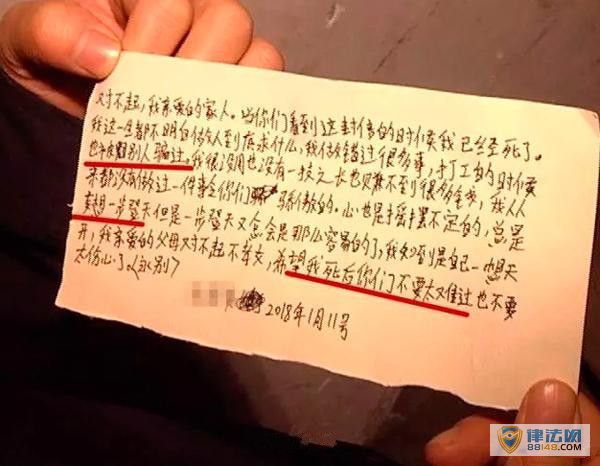 对不起,我亲爱的家人。当你们看到这封信的时候我已经死了。
我这一生都不明白做人到底求什么,我做错过很多事,打工的时候
也被别人骗过。我很没用也没有一技之长也赚不到很多金钱,我从
来都没有做过一件事令你们骄傲的。心也是摇摆不定的,总是
想一步登天但是一步登天又怎会是那么容易的了,我知到是自己想
开,我亲爱的父母对不起不孝女,希望我死后你们不要太难过也不要
太伤心了。(永别)
2018年1月11号
律法网
88148.COM